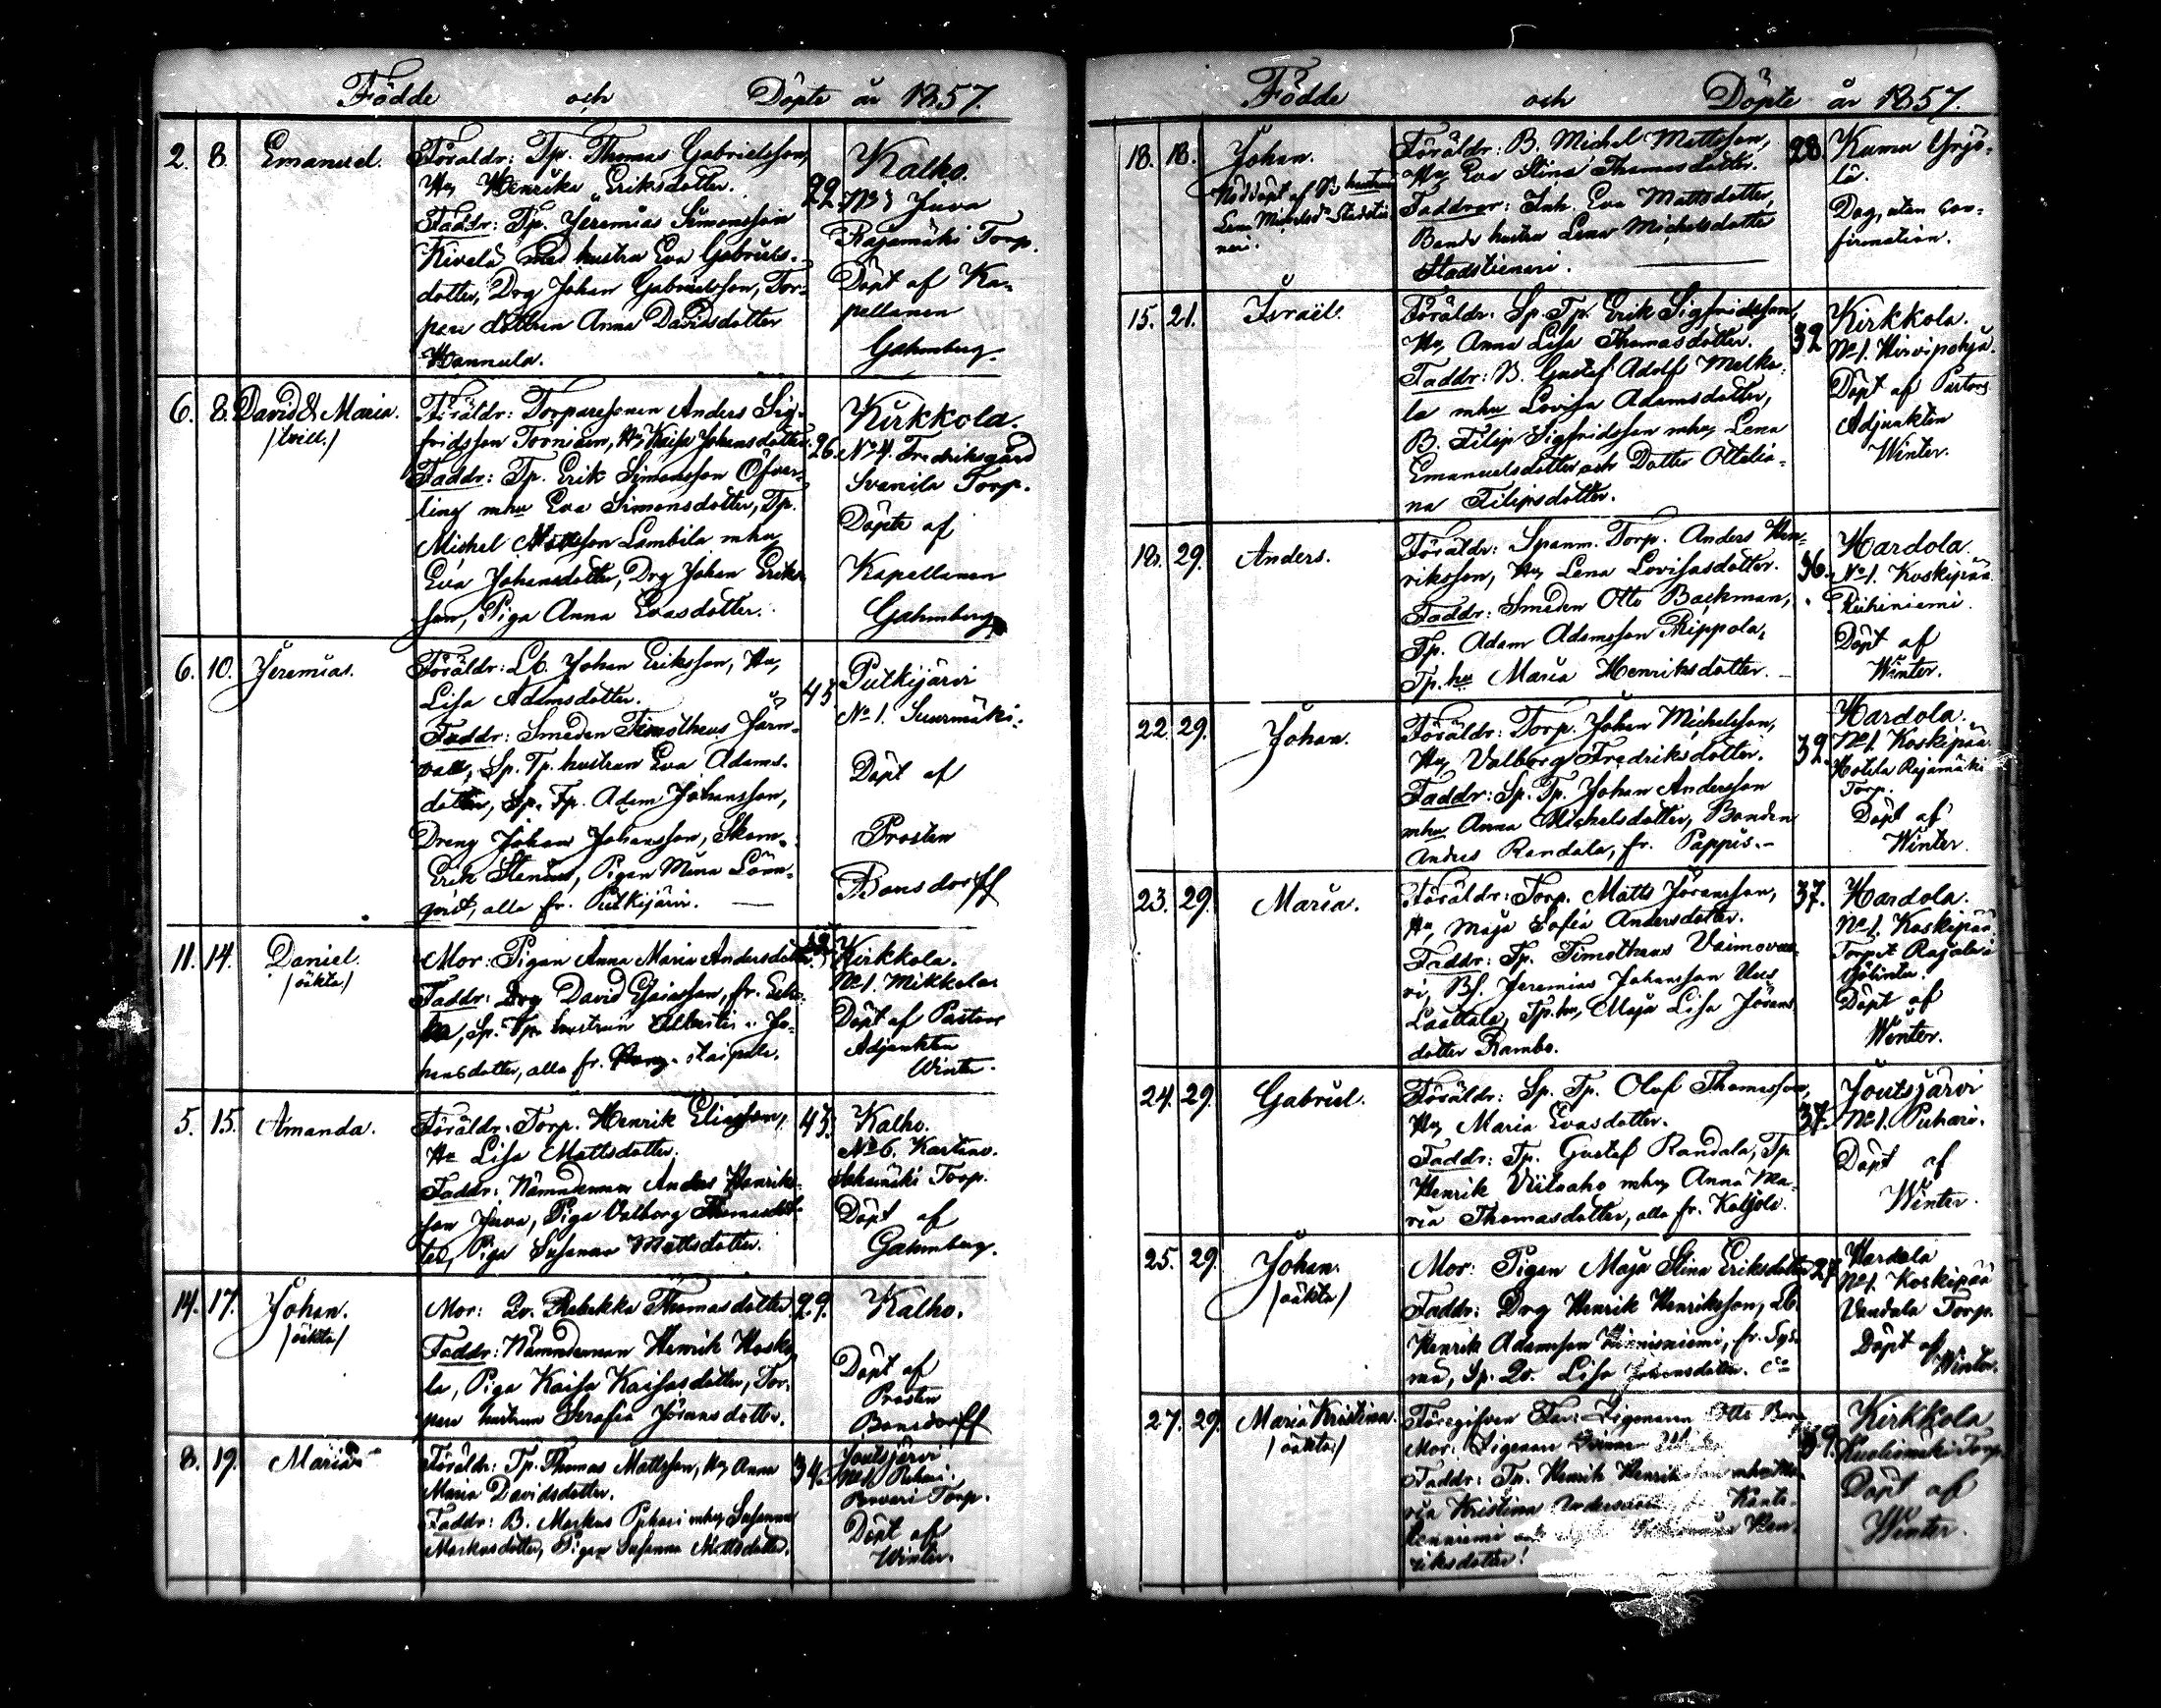 Födde och Döpte år 1857.
2. 8. Emanuel.
Föräldr: Tp. Thomas Gabrielsson,
Hu Henrika Eriksdotter.
Faddr: Tp. Jeremias Simonsson
Kivelä med hustru Eva Gabriels-
dotter, Drg Johan Gabrielsson, Tor-
pare dottren Anna Davidsdotter
Hannula.
22.
Kalho.
Juva
Rajamäki Torp.
Döpt af Ka-
pellanen
Gahmberg.
6. 8. David & Maria.
/tvill./
Föräldr: Torparesonen Anders Sig-
fridsson Torniain, Hu Kaisa Johansdotter.
Faddr: Tp. Erik Simonsson Öfver-
ling mhu Eva Simonsdotter, Tp.
Michel Mattsson Lambila mhu
Eva Johansdotter, Drg Johan Eriks-
son, Piga Anna Evasdotter.
26.
Kirkkola.
No 4. Fredriksgård
Svenila Torp.
Döpte af
Kapellanen
Gahmberg
6. 10. Jeremias.
Föräldr: Lb. Johan Eriksson, Hu,
Lisa Adamsdotter.
Faddr: Smeden Timotheus Järn-
vall, Sp. Tp. hustrun Eva Adams-
dotter, Sp. Tp. Adam Johansson,
Dreng Johan Johansson, Skom.
Erik Stenius, Pigan Mina Lönn-
qvist, alla fr. Putkijärvi.
45
Putkijärvi
No 1. Suurmäki.
Döpt af
Prosten
Bonsdorff
11. 14. Daniel.
/oäkta/
Mor: Pigan Anna Maria Andersdotter
Faddr: Drg David Esaiasson, fr.
Sp. Tp. hustrun Albertina Jo-
hansdotter, alla fr.
Kirkkola.
No 1. Mikkola
Döpt af Pastors
Adjunkten
Winter.
5. 15. Amanda.
Föräldr: Torp. Henrik Eliasson,
Hu Lisa Mattsdotter.
Faddr: Nämndeman Anders Henriks-
son Juva, Piga Valborg Thomasdot-
ter, Piga Susanna Mattsdotter.
43.
Kalho.
No 6. Kartano.
Torp.
Döpt af
Gahmberg.
14. 17. Johan.
/oäkta/
Mor: Qv. Rebekka Thomasdotter
Faddr: Nämndeman Henrik Hosko-
la, Piga Kaisa Kaisasdotter, Tor-
pare hustrun Serafia Jöransdotter.
29.
Kalho.
Döpt af
Prosten
Bonsdorff
8. 19. Maria
Föräldr: Tp. Thomas Mattsson, Hu Anna
Maria Davidsdotter.
Faddr: B. Markus Puhari mhu Susanna
Markusdotter, Pigan Susanna Mattsdotter.
34.
Joutsjärvi
No 1. Puhari.
Torp.
Döpt af
Winter.
Födde och Döpte år 1857.
18. 18. Johan.
Nöddöpt af B. hustrun
Lena Michelsdr Stadstie
neri.
Föräldr: B. Michel Mattsson,
Hu, Eva Stina Thomasdotter.
Faddrar: Inh. Eva Mattsdotter,
Bonde hustru Lena Michelsdotter
Stadstieneri.
28.
Kumu Yrjö-
lä.
Dog, utan con-
firmation.
15. 21. Israël.
Föräldr. Sp. Tp. Erik Sigfridsson,
Hu, Anna Lisa Thomasdotter.
Faddr: B. Gustaf Adolf Melko-
la mhu Lovisa Adamsdotter,
B. Filip Sigfridsson mhu, Lena
Emanuelsdotter och Dotter Ottilia-
na Filipsdotter.
32
Kirkkola.
No 1. Hirvipohja.
Döpt af Pastors
Adjunkten
Winter.
18. 29. Anders.
Föräldr: Spanm. Torp. Anders Hen-
riksson, Hu, Lena Lovisasdotter.
Faddr: Smeden Otto Backman,
Tp. Adam Adamsson Skippola,
Tp. hu Maria Henriksdotter.
36.
Hardola.
No 1. Koskipää
Riihiniemi.
Döpt af
Winter.
22. 29. Johan.
Föräldr: Torp. Johan Michelsson,
Hu, Valborg Fredriksdotter.
Faddr: Sp. Tp. Johan Andersson
mhu Anna Michelsdotter, Bonden
Andres Randala, fr. Pappis.
32.
Hardola.
No 1. Koskipää.
Rajamäki
Torp.
Döpt af
Winter.
23. 29. Maria.
Föräldr: Torp. Matts Jöransson,
Hu, Maja Sofia Andersdotter.
Faddr: Tp. Timotheus
vi, Bs. Jeremias Johansson Uus
Laattala, Tp. hu, Maja Lisa Jörans
dotter Rambo.
37.
Hardola.
No 1. Koskipää
Torpet
Döpt af
Winter.
24. 29. Gabriel.
Föräldr: Sp. Tp. Olof Thomasson,
Hu, Maria Evasdotter.
Faddr: Tp. Gustaf Randala, Tp
Henrik Viiluaho mhu, Anna Ma-
ria Thomasdotter, alla fr.
37.
Joutsjärvi
No 1. Puhari.
Döpt af
Winter.
25. 29. Johan.
/oäkta/
Mor: Pigan Maja Stina Eriksdotter
Faddr: Drg Henrik Henriksson, Lb.
Henrik Adamsson fr. Sys-
mä, Sp. Qv. Lisa Johansdotter.
27
Hardola
No 1. Koskipää
Vandala Torp.
Döpt af
Winter.
27. 29. Maria Kristina.
/oäkta/
Föregifven Far: Zigenaren Otto
Mor: Zigenaren
Faddr: Tp. Henrik Henriksson mhu Ma-
ria Kristina
Hen-
riksdotter!
39.
Kirkkola
Torp.
Döpt af
Winter.